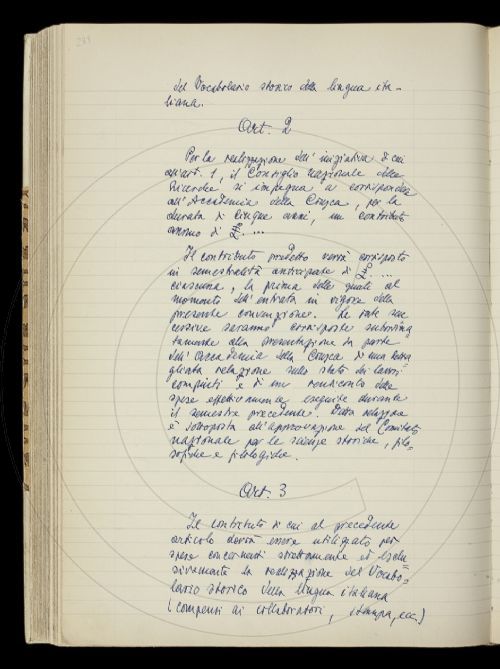 del Vocabolario storico della lingua ita-
liana.
Art. 2
Per la realizzazione dell'iniziativa di cui
all'art. 1, il Consiglio Nazionale delle
Ricerche si impegna a corrispondere
all'Accademia della Crusca, per la
durata di cinque anni, un contributo
annuo di £ ....
Il contributo predetto verrà corrisposto
in semestralità anticipate di £ ....
ciascuna, la prima delle quali al
momento dell'entrata in vigore della
presente convenzione. Le rate suc
cessive saranno corrisposte subordina
tamente alla presentazione da parte
dell'Accademia della Crusca di una detta
gliata relazione sullo stato dei lavori
compiuti e di un rendiconto delle
spese effettivamente eseguite durante
il semestre precedente. Detta relazione
è sottoposta all'approvazione del Comitato
nazionale per le scienze storiche, filo=
sofiche e filologiche.
Art. 3
Il contributo di cui al precedente
articolo dovrà essere utilizzato per
spese concernenti strettamente ed esclu=
sivamente la realizzazione del Vocabo=
lario storico della lingua italiana
(compensi ai collaboratori, stampa, ecc.)